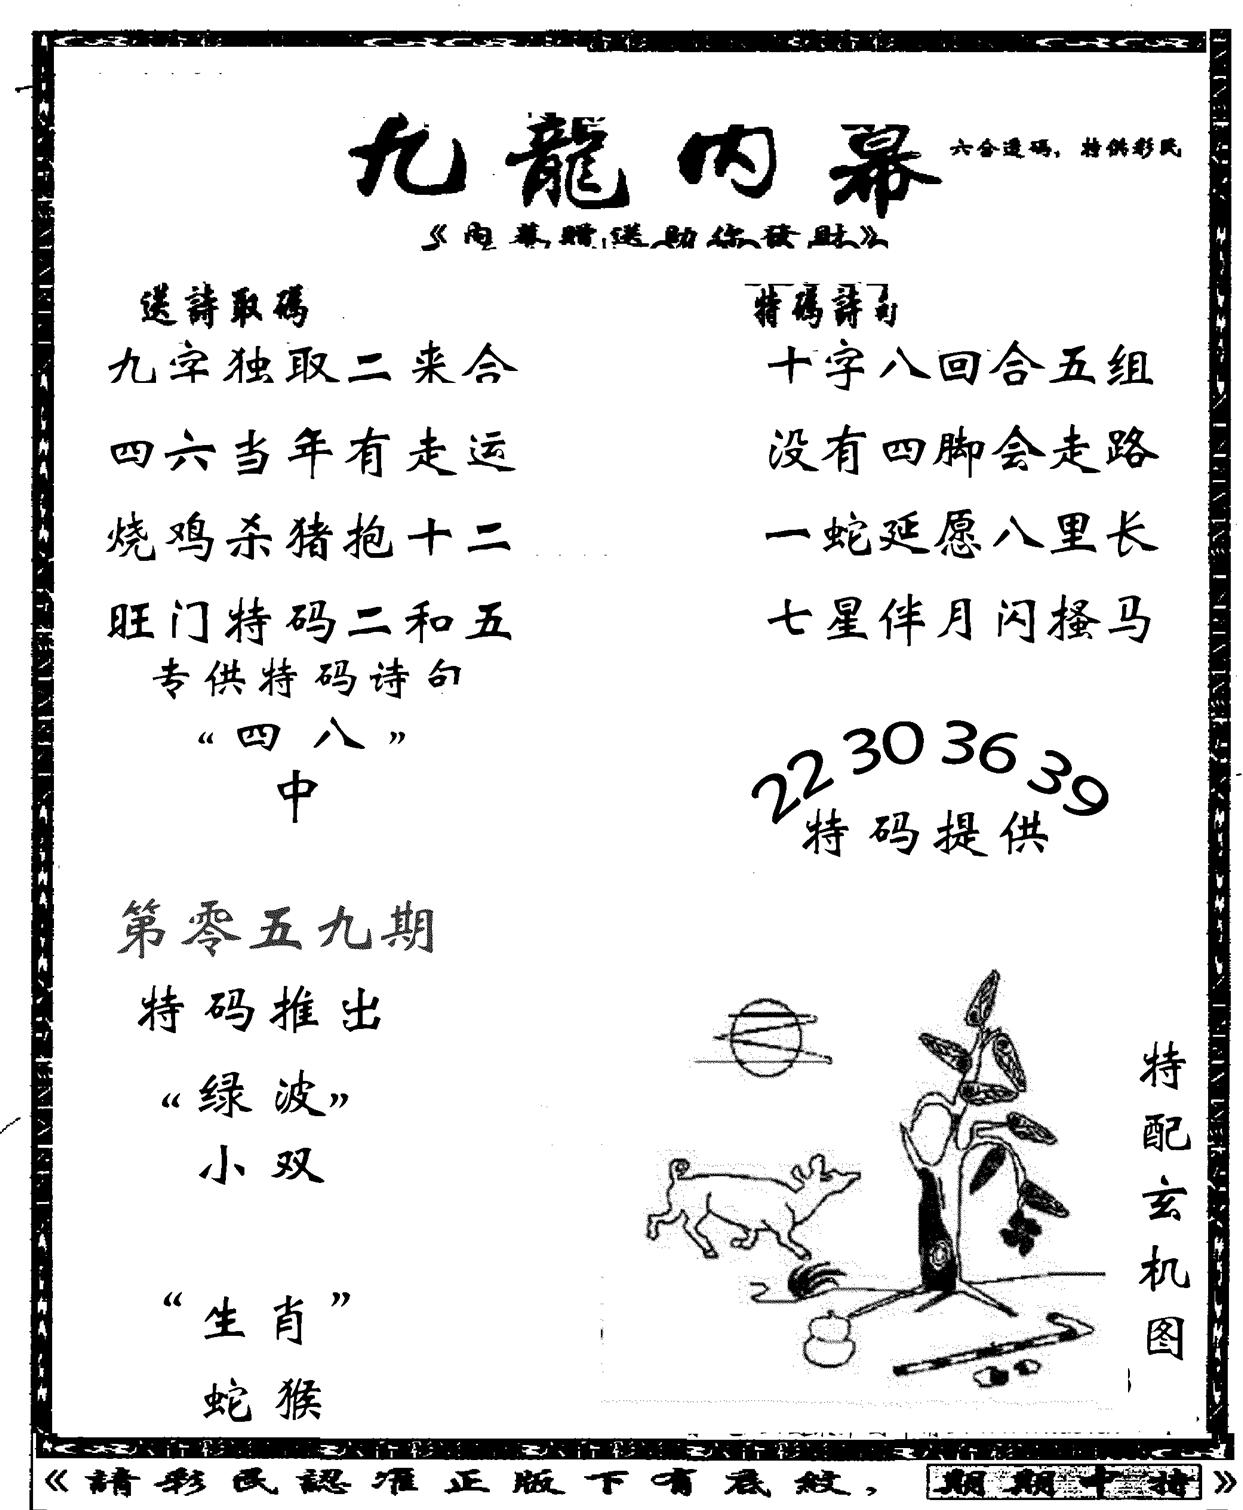 九龍内幕
六合透码，特供彩民
《内幕贈送助你發財》
送詩取碼
九字独取二来合
四六当年有走运
烧鸡杀猪抱十二
旺门特码二和五
专供特码诗句
“四八”
中
特碼詩句
十字八回合五组
没有四脚会走路
一蛇延愿八里长
七星伴月闪搔马
22 30 36 39
特码提供
第零五九期
特码推出
“绿波”
小双
“生肖”
蛇猴
特配玄机图
《請彩民認准正版下有底紋，期期中特》